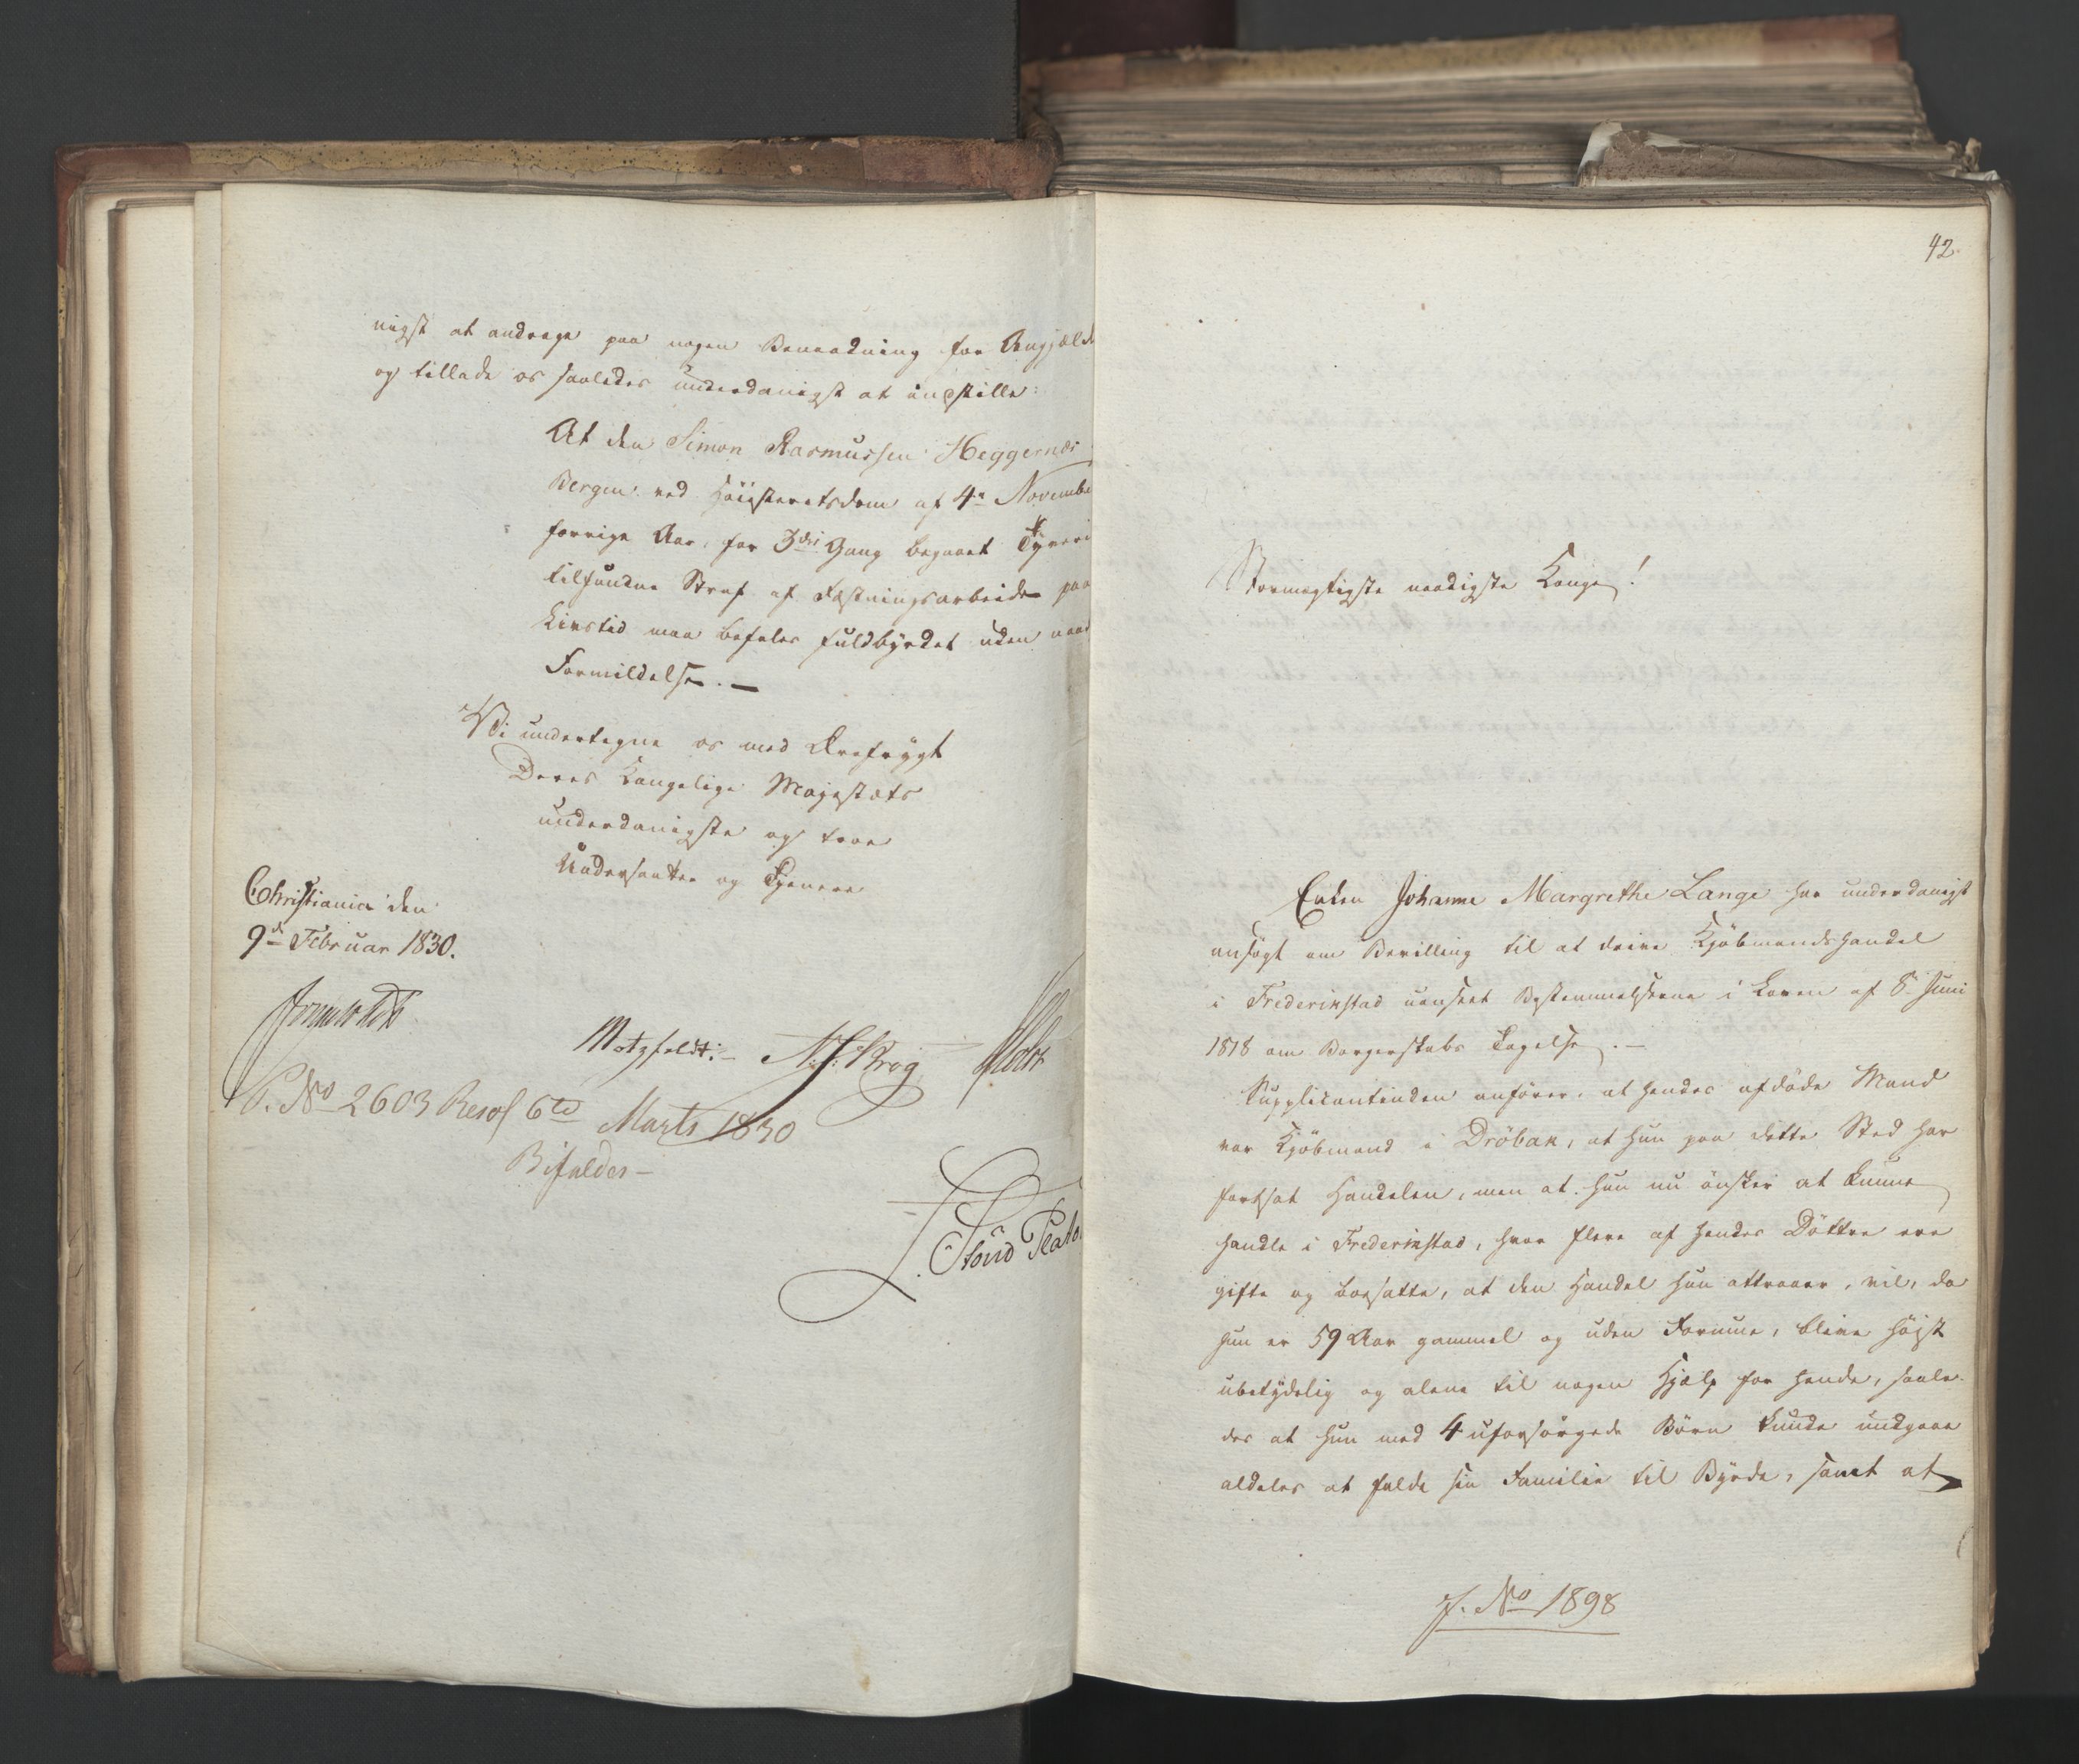 nigst at andrage paa nogen Benaadning for Angjæld
og tillade os saaledes underdanigst at indstille:
At den Simon Rasmussen Heggernæs
Bergen ved Høiesteretsdom af 4de Novembe
forrige Aar, for 3die Gang begaaet Tyveri
tilfundne Straf af Fæstningsarbeide paa
Livstid maa befales fuldbyrdet uden naad
Formildelse. —
Vi undertegne os med Ærefrygt
Deres Kongelige Majestæts
underdanigste og troe
Undersaatter og Tjenere
Christiania den
9de Februar 1830.
Motzfeldt. N. J. Krog Holst
P. No 2603 Resol 6te Marts 1830
Bifaldes —
42.
Stormægtigste naadigste Konge!
Enken Johanne Margrethe Lange har underdanigst
ansøgt om Bevilling til at drive Kjöbmandshandel
i Frederikstad uanseet Bestemmelserne i Loven af 8de Juni
1818 om Borgerskabs Tagelse. —
Supplicantinden anfører, at hendes afdöde Mand
var Kjöbmand i Dröbak, at hun paa dette Sted har
fortsat Handelen, men at hun nu önsker at kunne
handle i Frederikstad, hvor flere af hendes Döttre ere
gifte og bosatte, at den Handel hun attraaer, vil, da
hun er 59 Aar gammel og uden Formue, blive höist
ubetydelig og alene til nogen Hjælp for hende, saale-
des at hun med 4 uforsörgede Börn kunde undgaae
aldeles at falde sin Familie til Byrde, samt at
J. No 1898